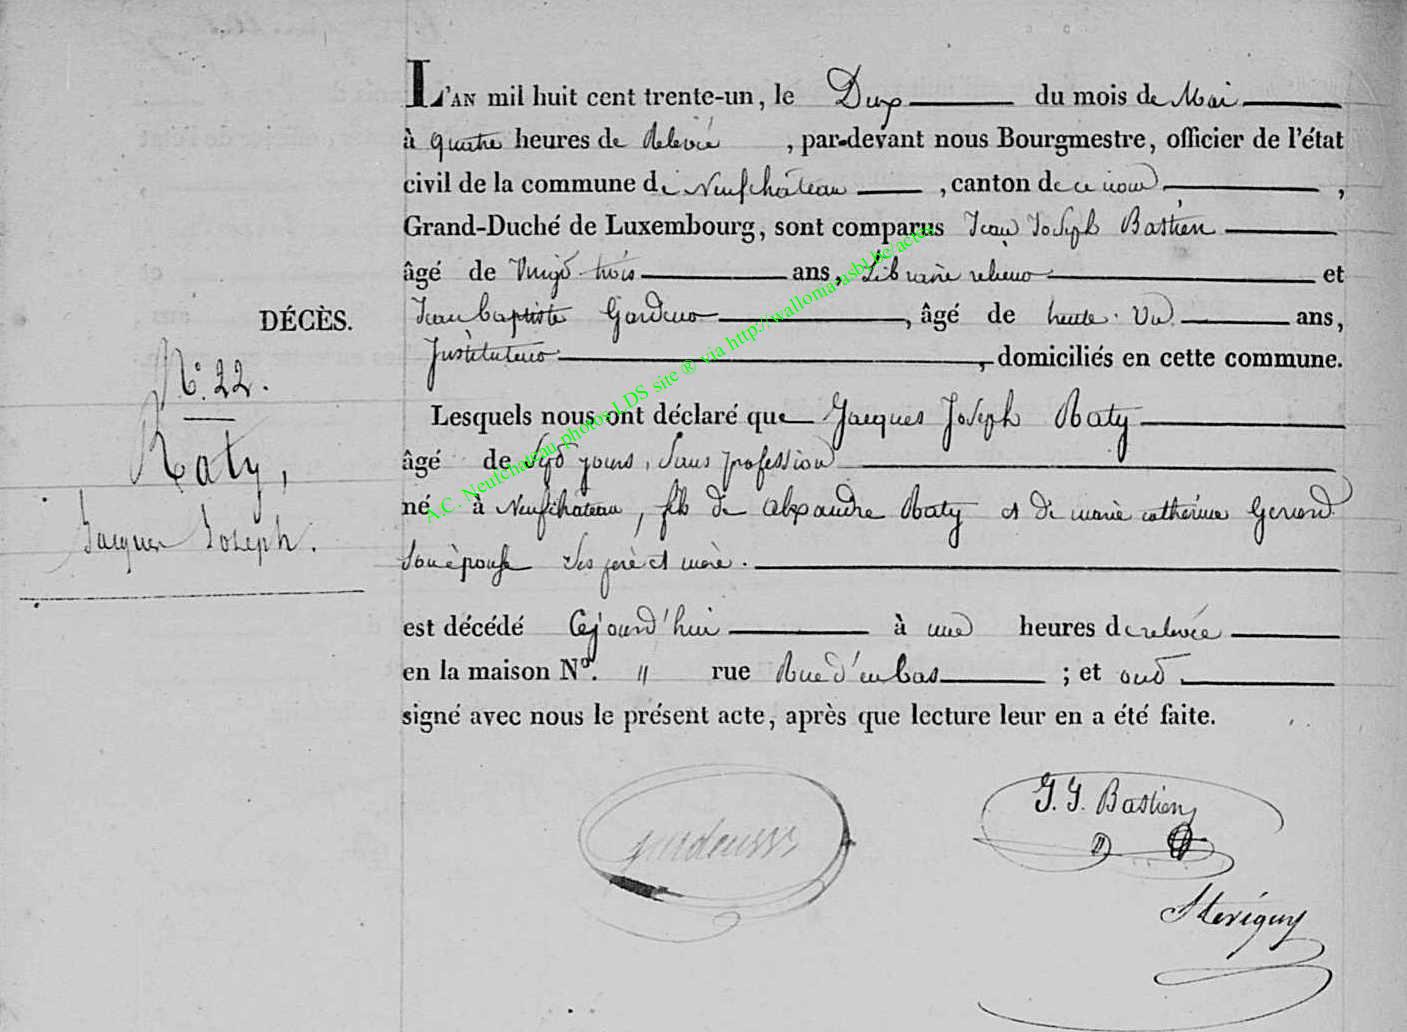 L'AN mil huit cent trente-un, le Deux du mois de Mai
à quatre heures de relevée, par-devant nous Bourgmestre, officier de l'état
civil de la commune de Neufchâteau, canton de ce nom,
Grand-Duché de Luxembourg, sont comparus Jean Joseph Bastien
âgé de Vingt trois ans, Libraire relieur et
Jean Baptiste âgé de trente-Un ans,
Instituteur, domiciliés en cette commune.
DÉCÈS.
N° 22.
Raty,
Jacques Joseph.
Lesquels nous ont déclaré que Jacques Joseph Raty
âgé de Sept jours, Sans profession
né à Neufchâteau, fils de alexandre Raty et de marie catherine Gerard
Son épouse Ses père et mère.
est décédé Cejourd'hui à une heures de relevée
en la maison N°. " rue Rue d'en bas ; et ont
signé avec nous le présent acte, après que lecture leur en a été faite.
J. J. Bastien
A.C. Neufchateau photos LDS site ® via http://walloma-asbl.be/actes